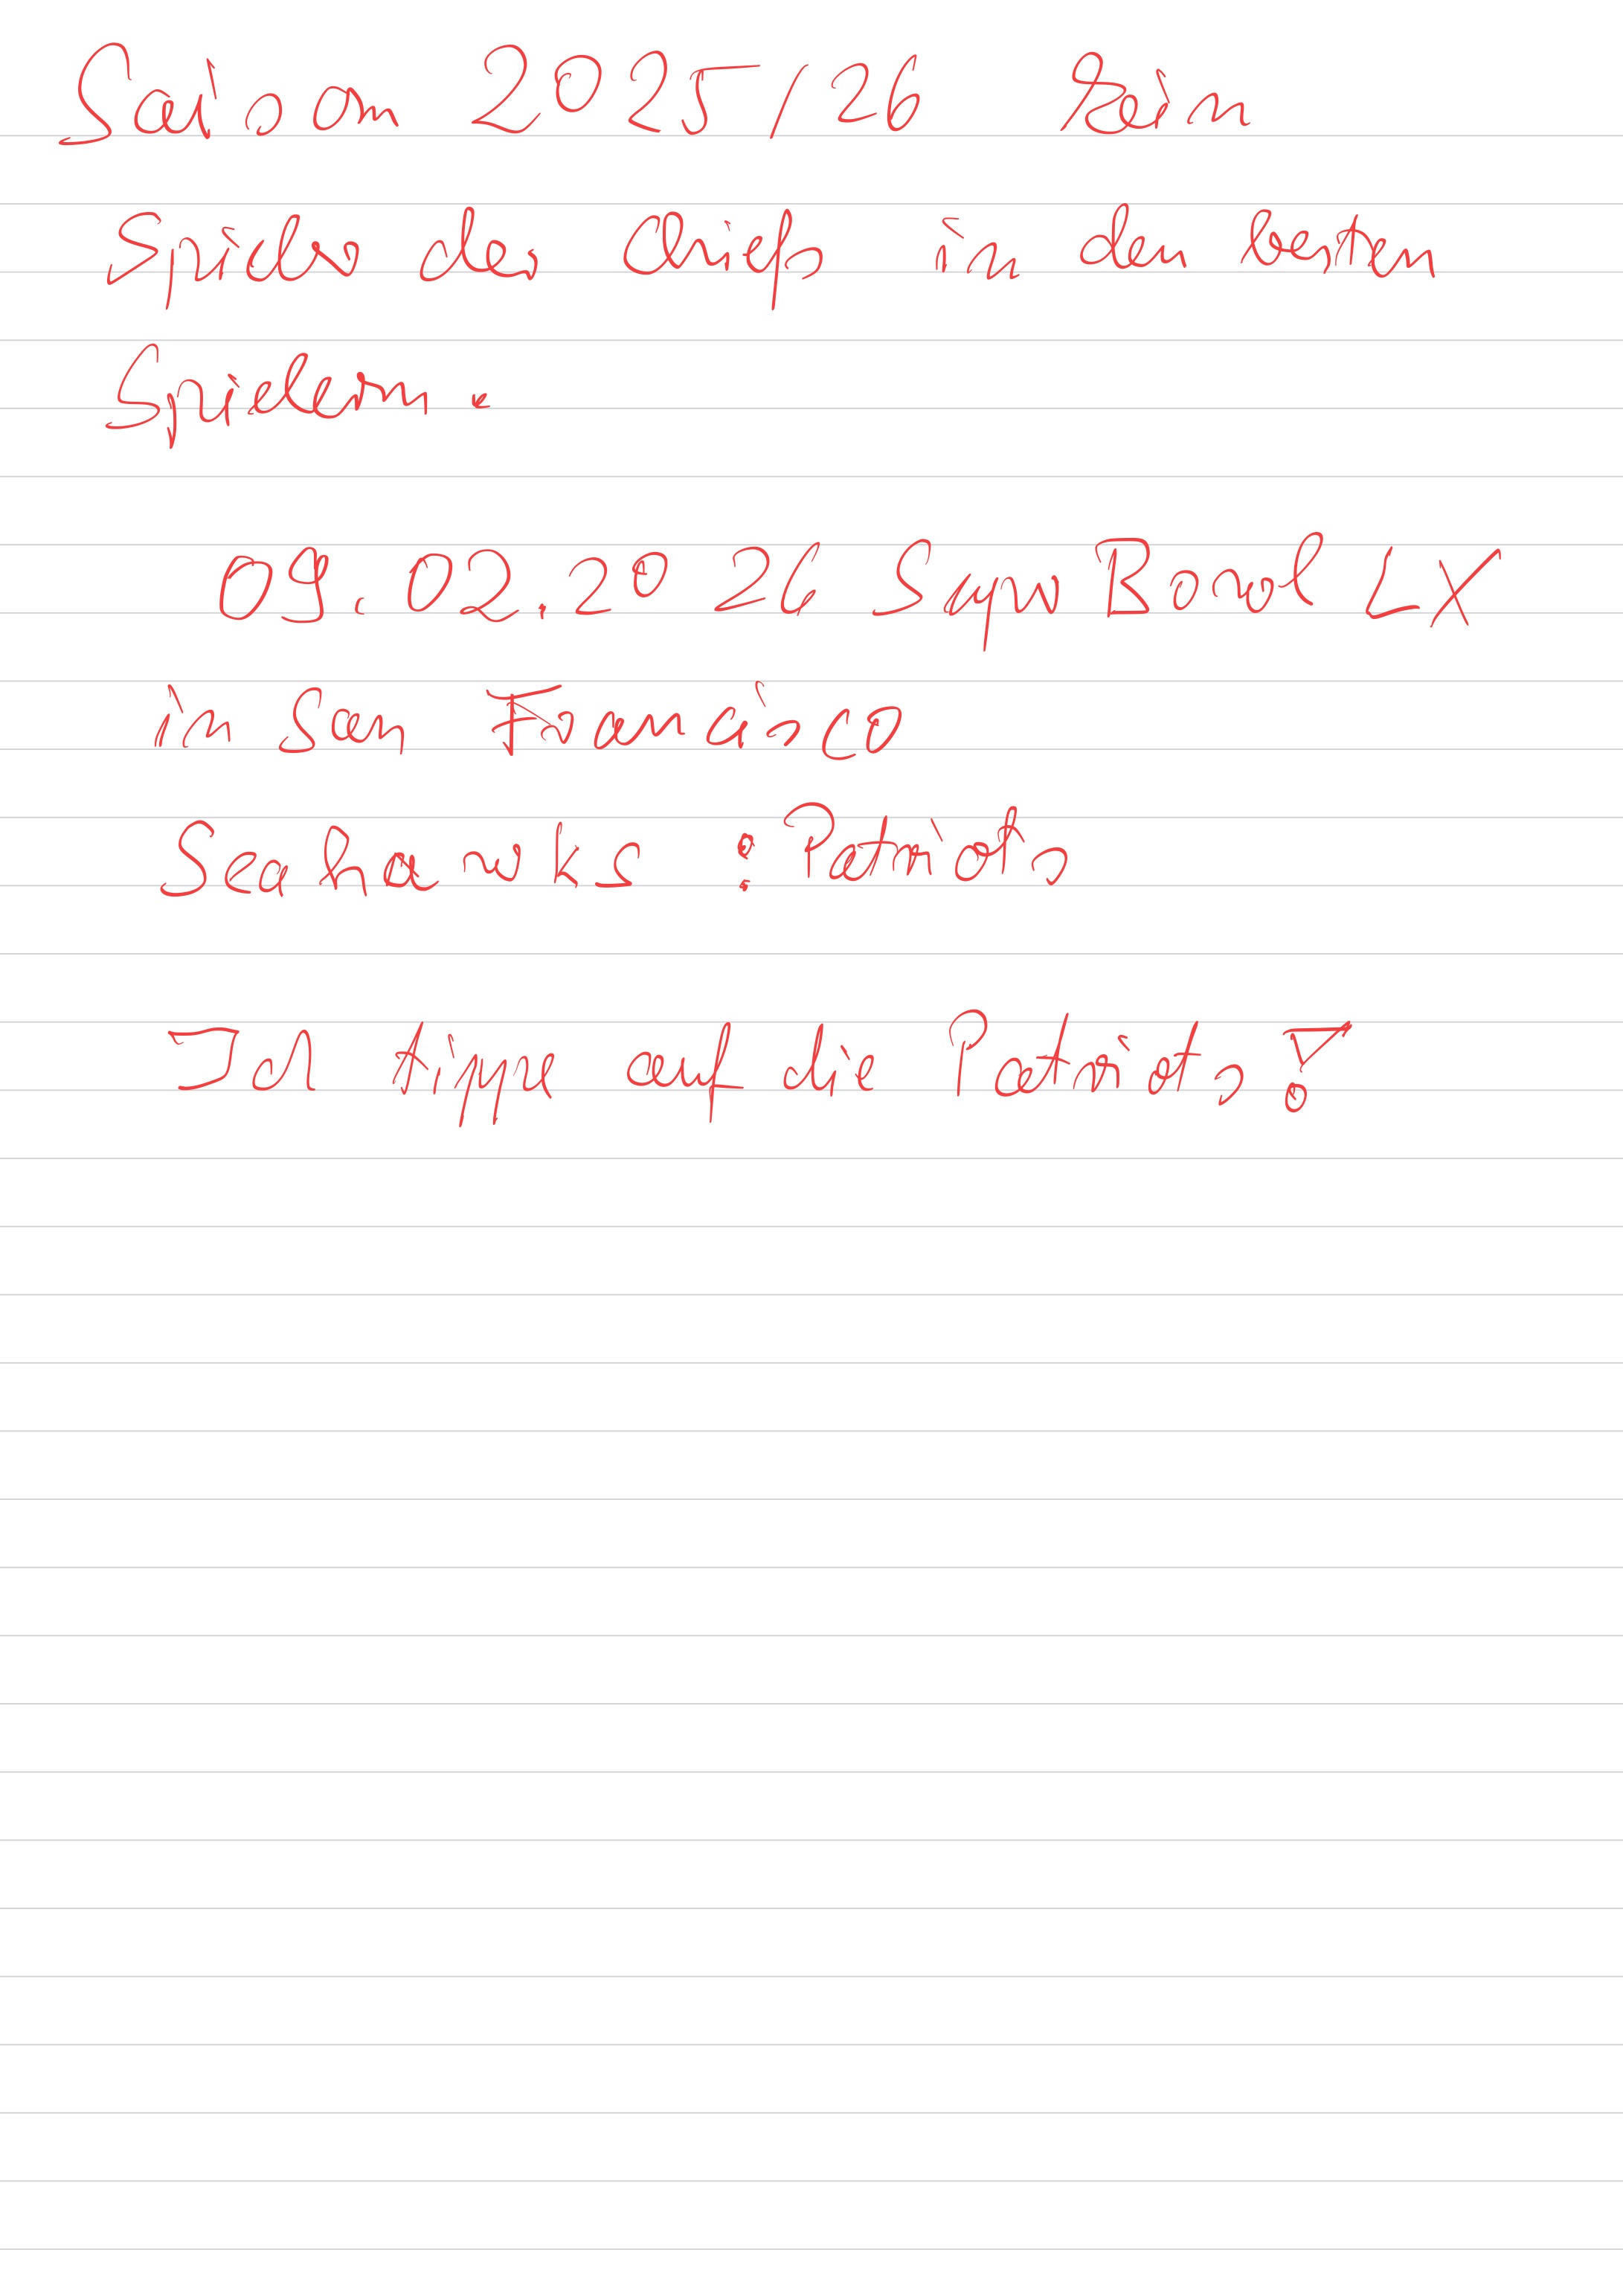 Saison 2025/26 kein
Spieler der Chiefs in den besten
Spielern.
09.02.2026 Super Bowl LX
in San Francisco
Seahawks : Patriots
Ich tippe auf die Patriots!